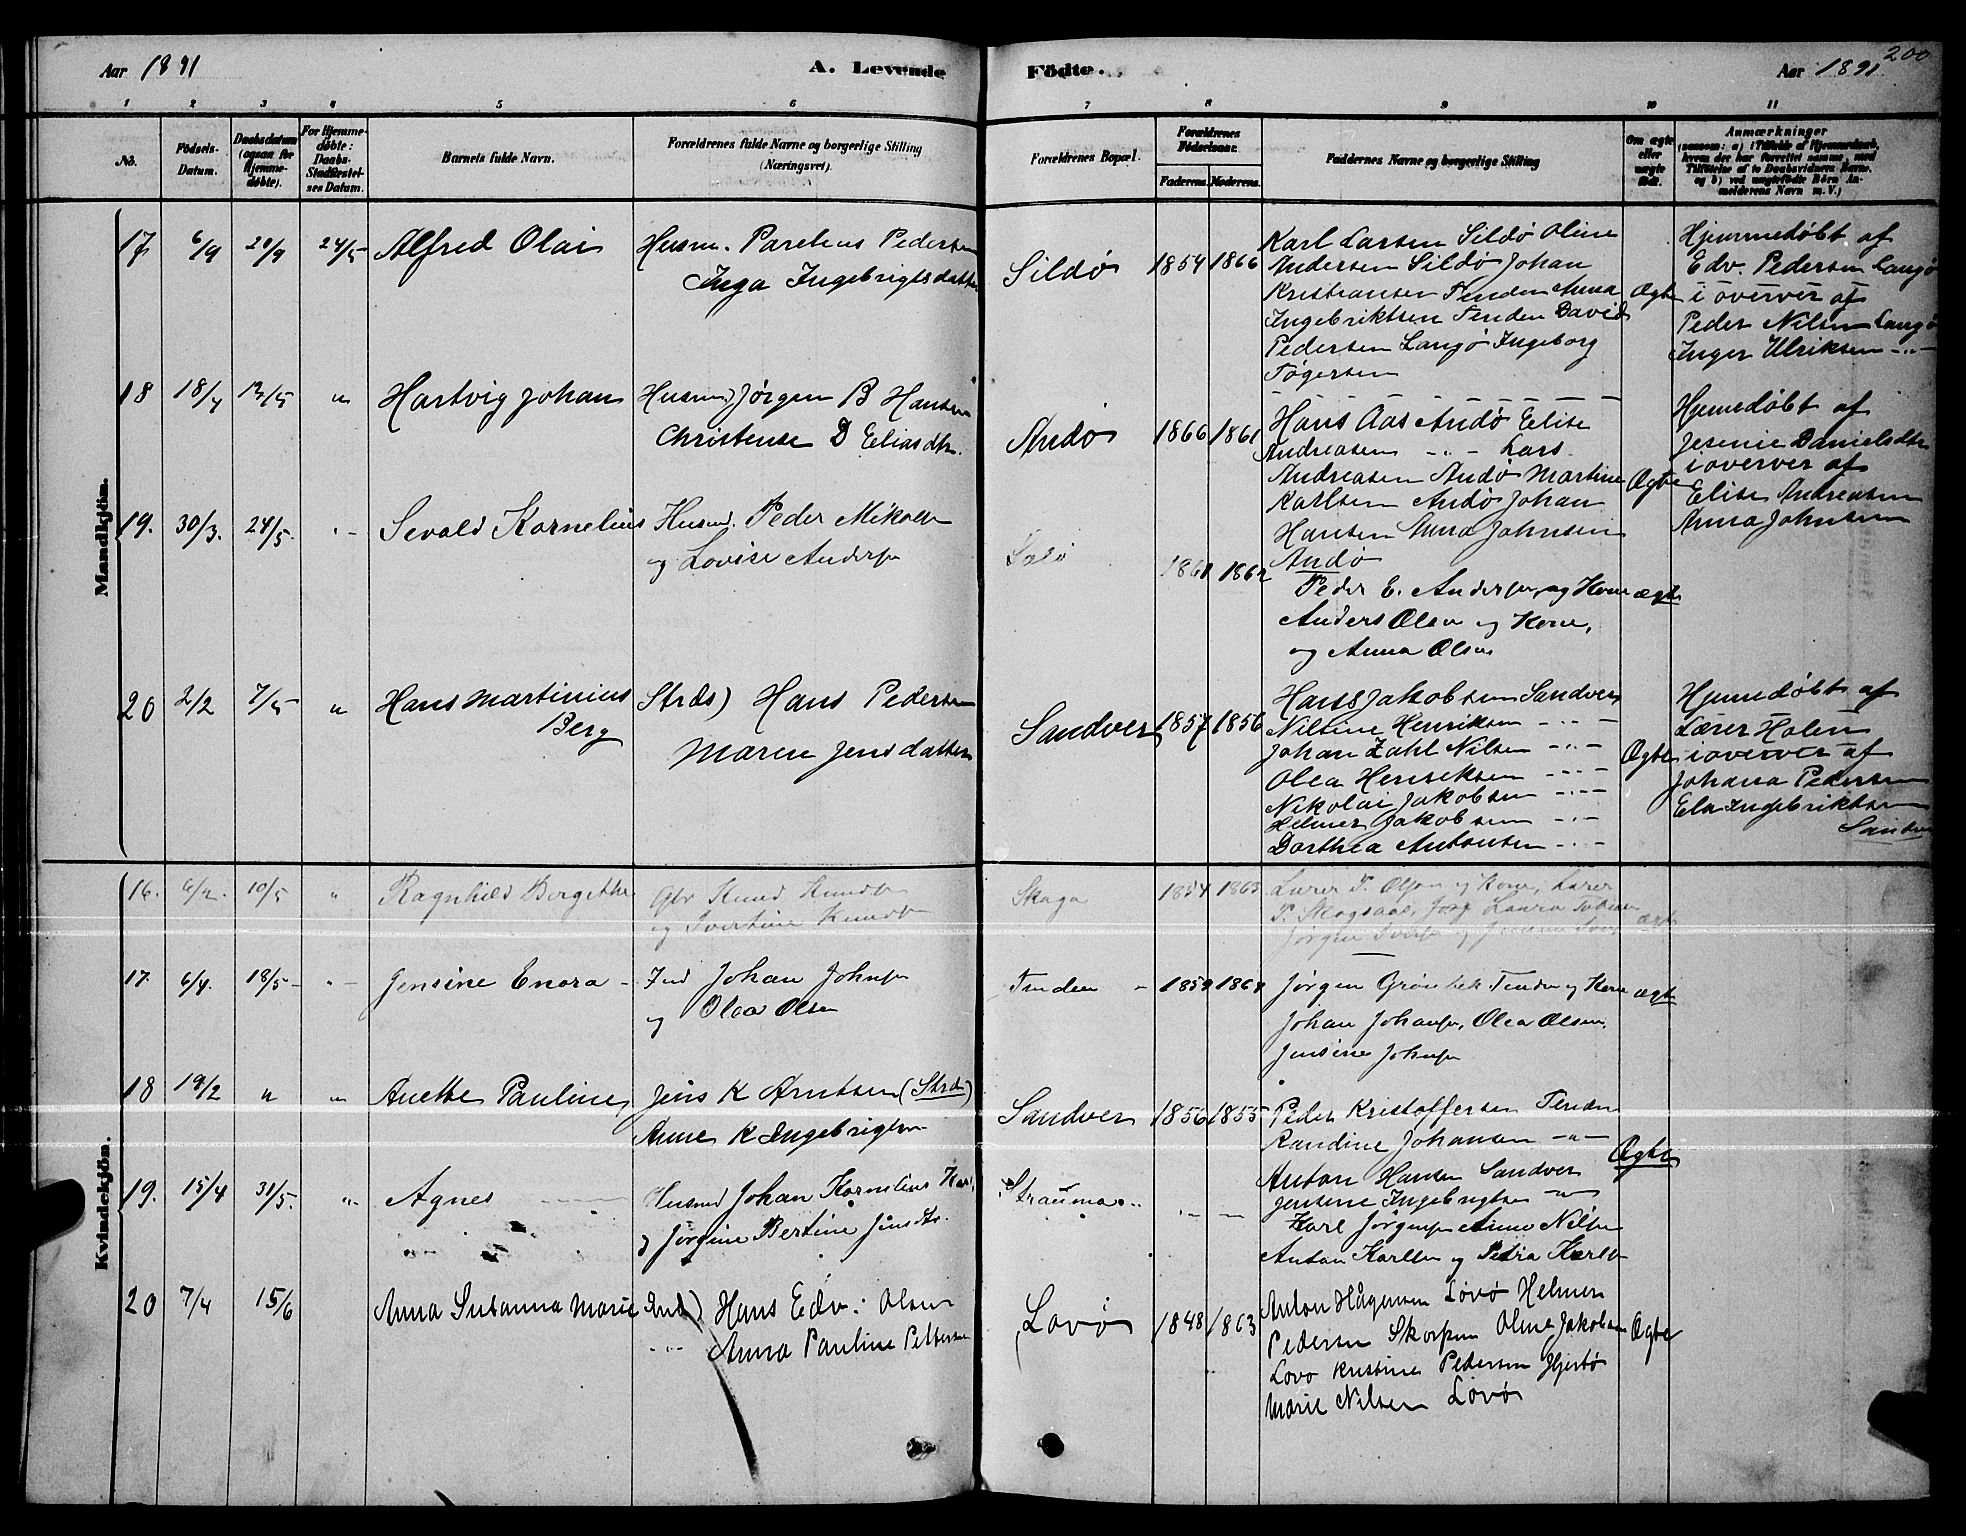 Aar 1891
A. Levende
Födte.
Aar 1891.
200
1 2 3 4 5 6 7 8 9 10 11
No.
Födsels-
Datum.
Daabsdatum
(ogsaa for
Hjemme-
döbte).
For Hjemme-
döbte:
Daabs-
Stadfæstel-
ses Datum.
Barnets fulde Navn.
Forældrenes fulde Navne og borgerlige Stilling
(Næringsvei).
Forældrenes Bopæl.
Forældrenes
Födselsaar.
Faderens. Moderens.
Faddernes Navne og borgerlige Stilling
Om ægte
eller
uægte
födt.
Anmærkninger
(saasom: a) i Tilfælde af Hjemmedaab,
hvem der har forrettet samme, med
Tilföielse af to Daabsvidners Navne,
og b) ved uægtefödte Börn An-
melderens Navn m. V.)
Mandkjön.
17 6/9 20/9 24/5 Alfred Olai
Husm. Parelius Pedersen
Inga Ingebrigtsdatter
Sildø 1854 1866
Karl Larsen Sildø Oline
Andersen Sildø Johan
Kristiansen Tenden Anna
Ingebriktsen Tenden David
Pedersen Langø Ingeborg
Tøgersen
Ægte
Hjemmedøbt af
Edv. Pedersen Langø
i overver af
Peder Nilsen Langø
Inger Ulriksen -"-
18 18/4 " Hartvig Johan
Husm) Jørgen B Hansen
Christense D Eliasdtr.
Andø 1866 1861
Hans Aas Andø Elise
Andreasen -"- Lars
Andreasen Andø Martine
Karlsen Andø Johan
Hansen Anna Johnsen
Andø
Ægte
Hjemedøbt af
Jesenie Danielsdtr
i overver af
Elise Andreasen
Anna Johnsen
19. 30/3. 24/5. "- Sevald Kornelius
Husmd. Peder Mikals
og Lovise Anders
1862
Peder E. Anders og Kone
Anders Olsen og Kone,
og Anna Olsen
ægte
20 2/2 7/5 " Hans Martinius
Berg
Strds) Hans Pedersen
Maren Jensdatter
Sandver 1857 1856
Hans Jakobsen Sandver
Nilsine Henriksen -"-
Johan Zahl Nilsen -"-
Olea Henriksen -"-
Nikolai Jakobsen -"-
Helmer Jakobsen -"-
Dorthea Antonsen -"-
Ægte
Hjemedøbt af
Lærer Holen
i overver af
Johana Pedersen
Ela Ingebriktsen
Sandver
Kvindekjön.
16. 10/5 " Ragnhild Bergethe
Gbr Knud Knuds
og Ivertine Knuds
Skaga 1854 1863
Lærer P. Olsen og Kone, Lærer
P. Skogsaas,
ægte
17. 6/4. 18/5 - "- Jensine Enora -
Ind Johan Johns
og Olea Olsen
Tenden -
Jørgen Grønbek Tenden og Kone
Johan Johans, Olea Olsen,
Jensine Johns
ægte
18 19/2 " " Anette Pauline
Jens K Arntsen (Strds)
Anne K Ingebrigtsen
Sandver 1856 1855
Peder Kristoffersen Tenden
Randine Johansen -"-
Anton Hansen Sandver
Jensine Ingebrigtsen -"-
Ægte
19. 15/4 31/5. " Agnes
Husmd Johan Kornelius
og Jørgine Bertine Jensdtr.
Straumøs.. "- -
Karl Jørgens Anne Nils
Anton Karlsen og Petra Karls
20 7/4 15/6 Anna Susanna Marie
Ind) Hans Edv: Olsen
"" Anna Pauline Pettersen
Lovø 1848 1863
Anton Hågensen Lovø Helmer
Pedersen Skorpen Oline Jakobsen
Lovø Kristine Pedersen Hjertø
Marie Nilsen Lovø
Ægte